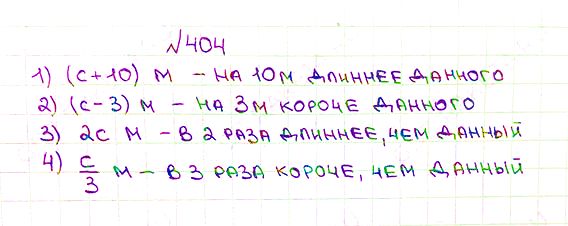 №404
1) (с+10) м – на 10м длиннее данного
2) (с-3) м – на 3м короче данного
3) 2с м – в 2 раза длиннее, чем данный
4) с/3 м – в 3 раза короче, чем данный